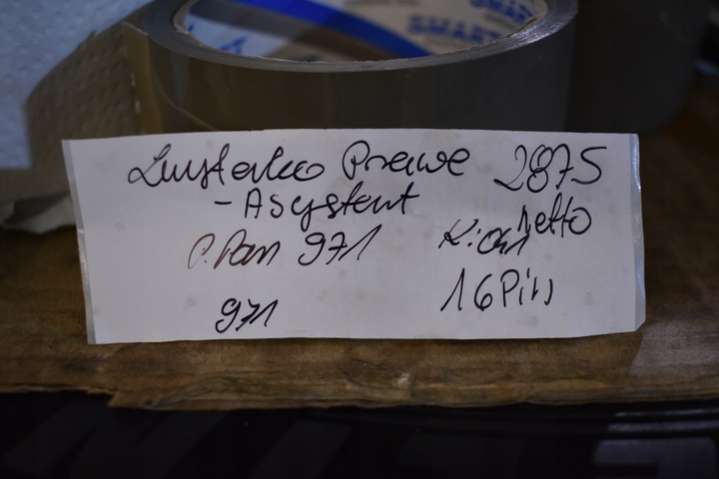 SMART SMART
Lusterko Prawe 2875
- Asystent netto
P. Pan 971
971 16 Pin